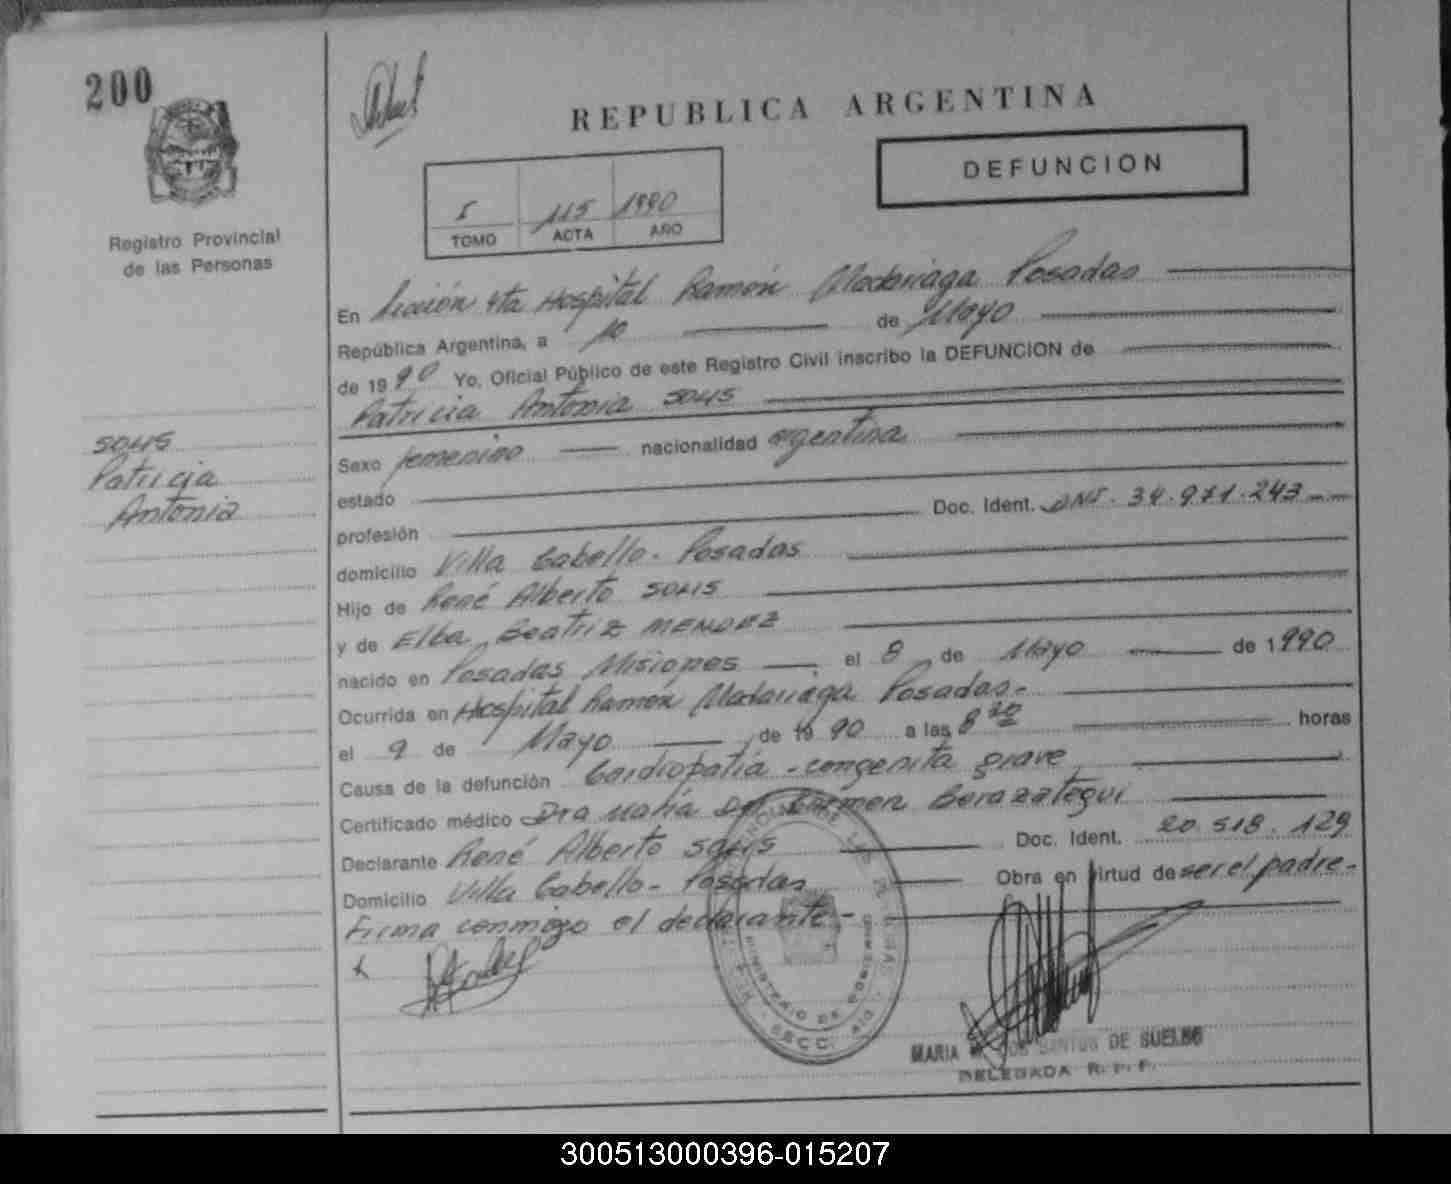 200
REPUBLICA ARGENTINA
DEFUNCION
5 115 1990
TOMO ACTA AÑO
Registro Provincial
de las Personas
SOLIS
Patricia
Antonia
En Sección 4ta Hospital Ramón Madariaga Posadas
República Argentina, a 10 de Mayo
de 1990 Yo, Oficial Público de este Registro Civil inscribo la DEFUNCION de
Patricia Antonia SOLIS
Sexo femenino nacionalidad argentina
estado
profesión Doc. Ident. DNI. 34.971.243
domicilio Villa Cabello - Posadas
Hijo de René Alberto SOLIS
y de Elba Beatriz MENDEZ
nacido en Posadas Misiones el 8 de Mayo de 1990
Ocurrida en Hospital Ramón Madariaga Posadas-
el 9 de Mayo de 1990 a las 8 30 horas
Causa de la defunción Cardiopatia - congenita grave
Certificado médico Dra Maria Del Carmen Berazategui
Declarante René Alberto SOLIS Doc. Ident. 20.518.129
Domicilio Villa Cabello - Posadas Obra en virtud de ser el padre-
Firma conmigo el declarante-
x
MARIA SANTOS DE SUELDO
DELEGADA R.P.P.
MINISTERIO DE GOBIERNO
300513000396-015207